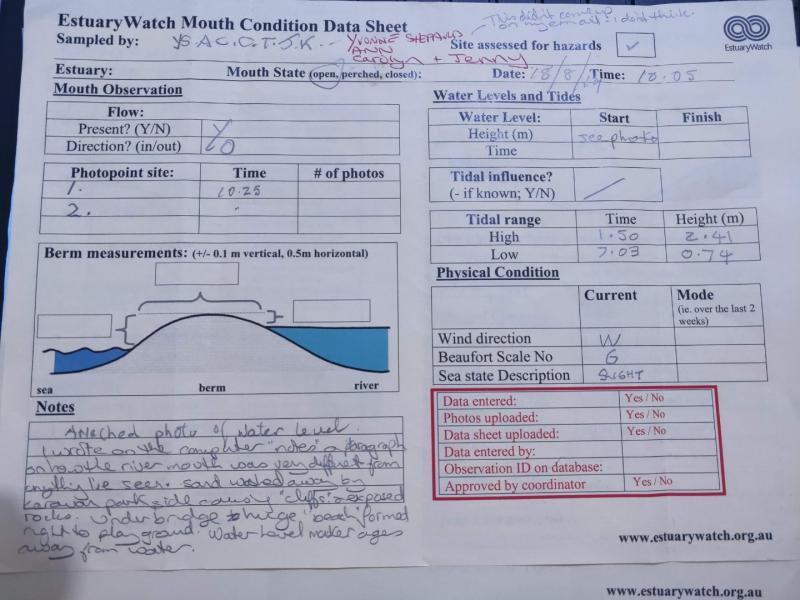 EstuaryWatch Mouth Condition Data Sheet
This didn't come up on my email - I don't think.
Sampled by: YS A C. O. T. J. K - - YVONNE SHEPPARD
ANN
Carolyn + Jenny
Site assessed for hazards ✓
EstuaryWatch
Estuary: Mouth State (open, perched, closed): Date: 18/8/ Time: 10.05
Mouth Observation
Flow:
Present? (Y/N) Y
Direction? (in/out) O
Photopoint site: Time # of photos
1. 10.25
2.
Berm measurements: (+/- 0.1 m vertical, 0.5m horizontal)
sea berm river
Notes
Attached photo of water level.
I wrote on the computer "notes" a paragraph
on how the river mouth was very different from
anything I've seen. Sand washed away by
caravan park side causing "cliffs" & exposed
rocks. Under bridge huge "beach" formed
right to playground. Water Level marker ages
away from water.
Water Levels and Tides
Water Level: Start Finish
Height (m) see photo
Time
Tidal influence?
(- if known; Y/N)
Tidal range Time Height (m)
High 1.50 2.41
Low 7.03 0.74
Physical Condition
Current Mode
(ie. over the last 2
weeks)
Wind direction W
Beaufort Scale No 6
Sea state Description SLIGHT
Data entered: Yes / No
Photos uploaded: Yes / No
Data sheet uploaded: Yes / No
Data entered by:
Observation ID on database:
Approved by coordinator Yes / No
www.estuarywatch.org.au
www.estuarywatch.org.au